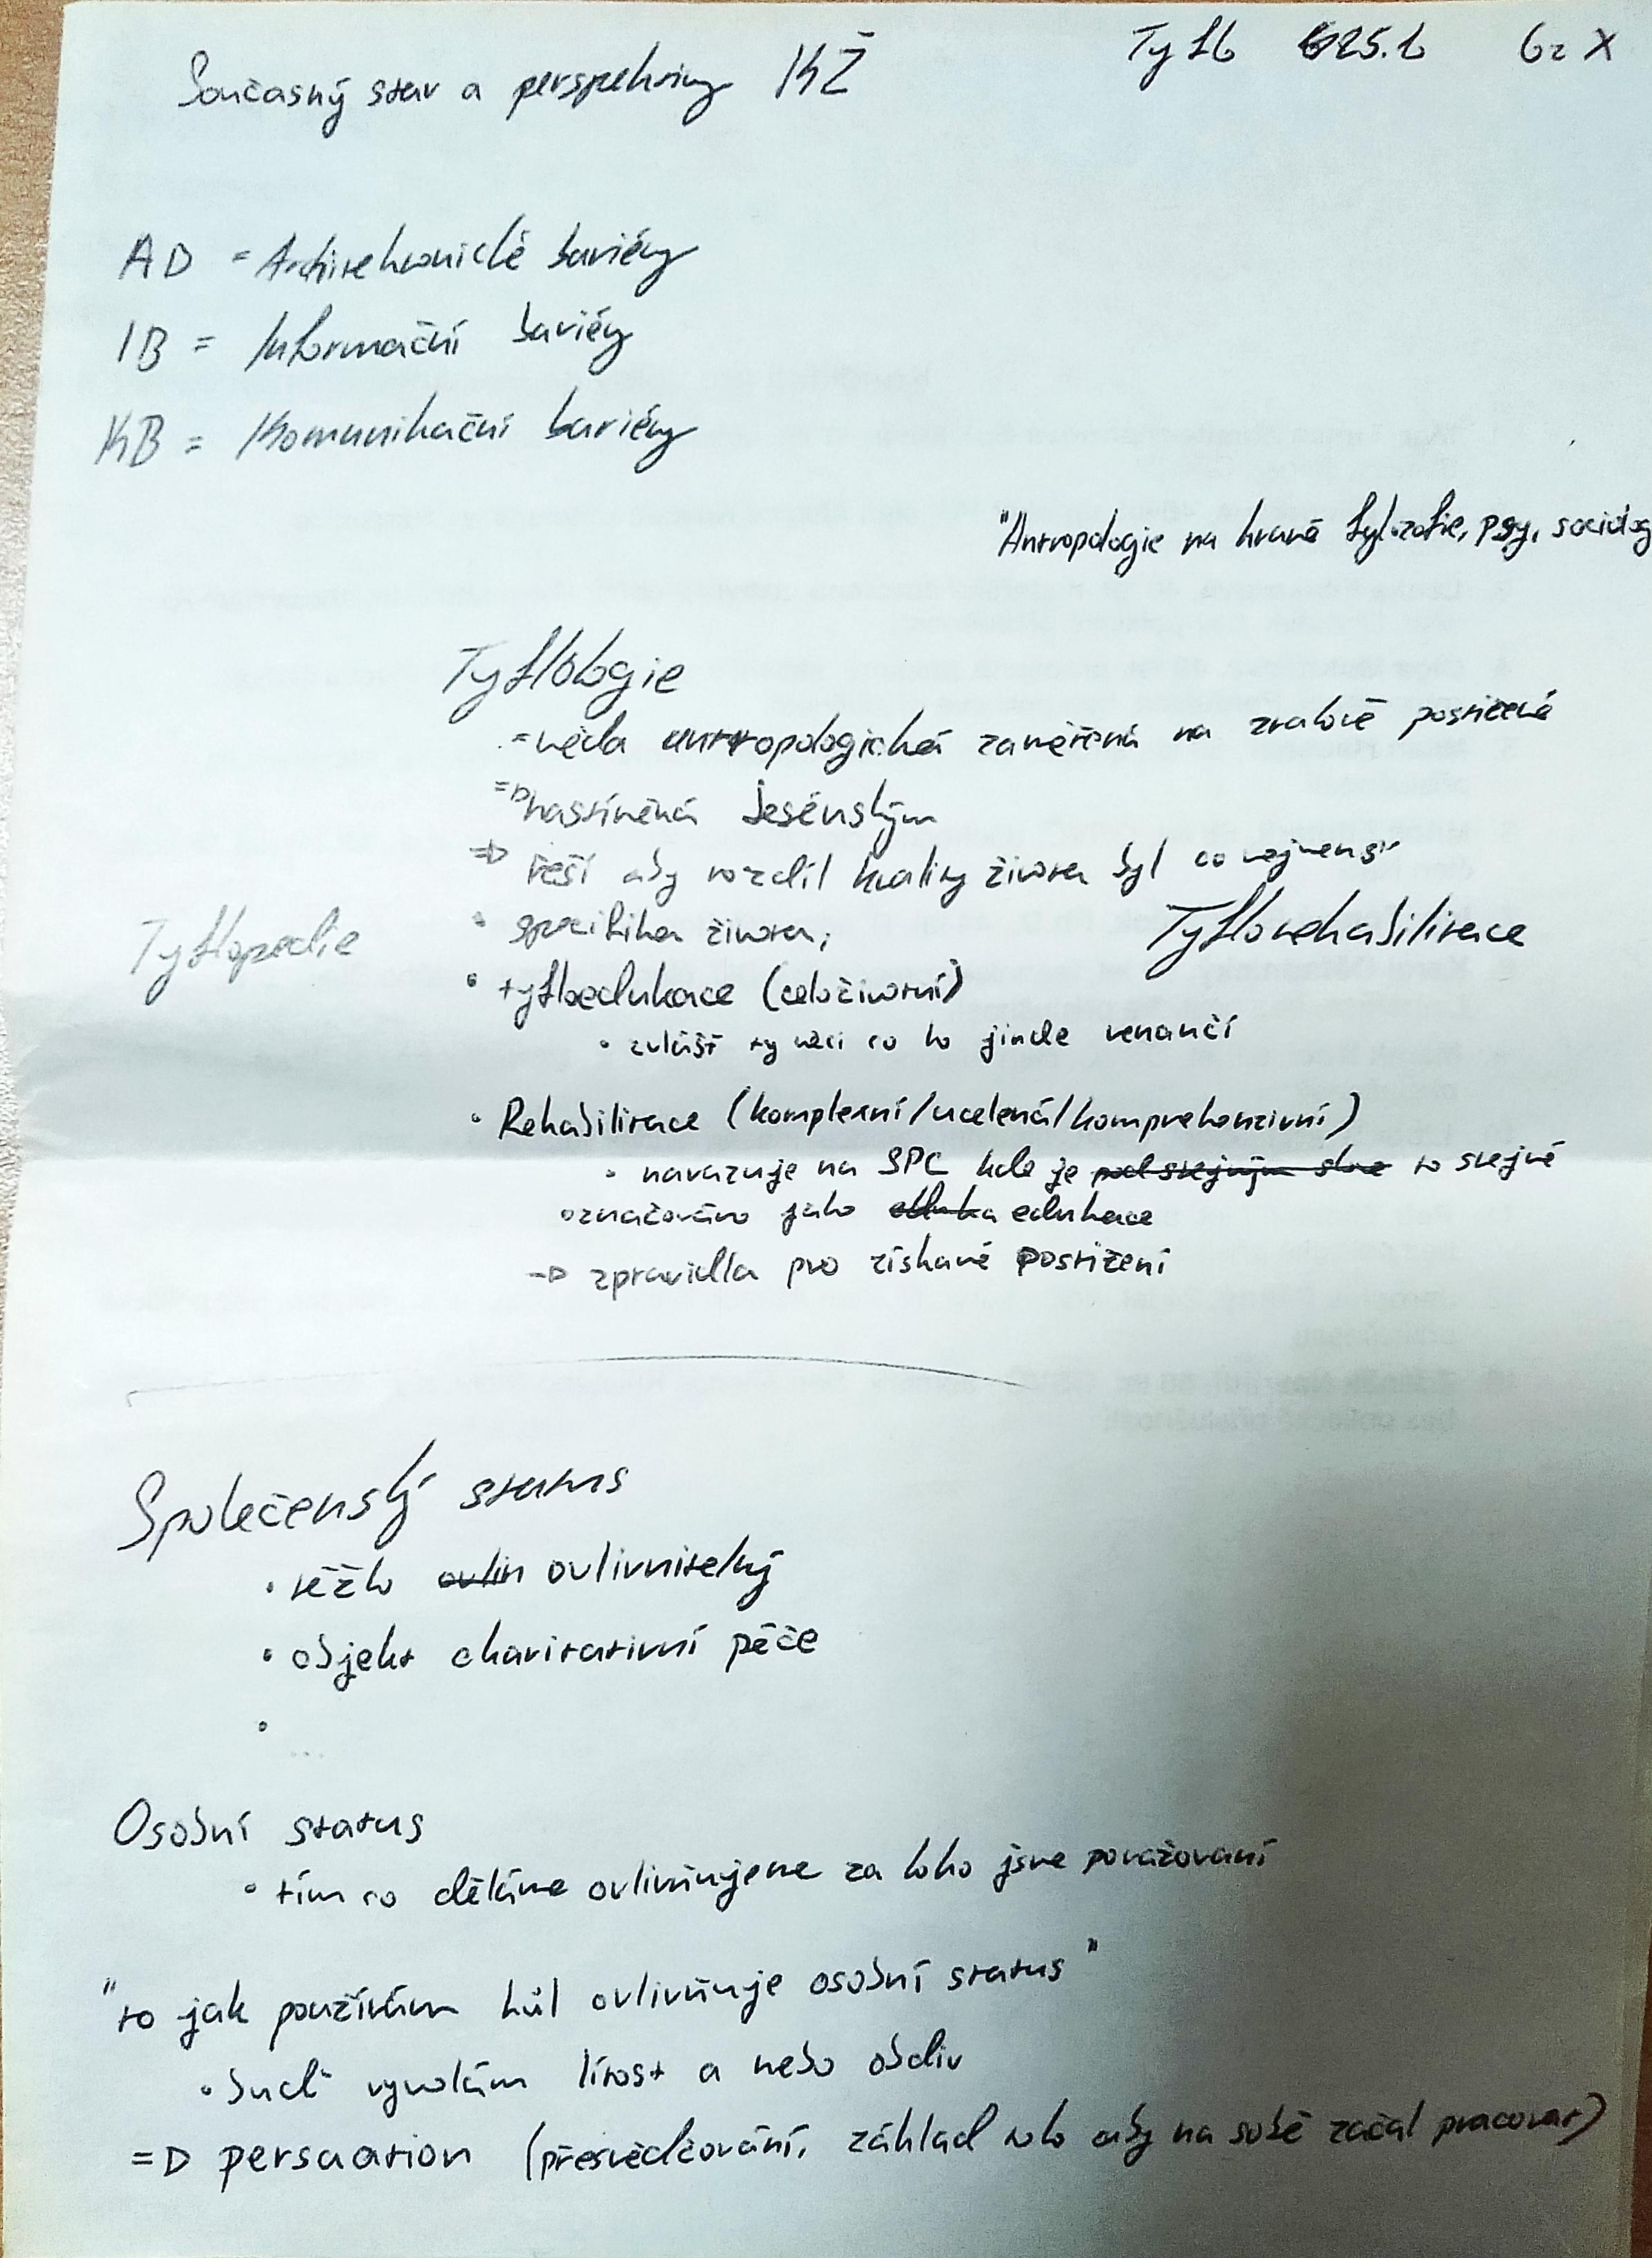 Současný stav a perspektivy KŽ
Tyfl6 25.1 62 X
AD = Architektonické bariéry
IB = Informační bariéry
KB = Komunikační bariéry
"Antropologie na hraně fylozofie, psy, sociolog
Tyflologie
= věda antropologická zaměřená na zrakově postižené
=D nastíněná Jesénským
=D řeší aby rozdíl kvality života byl co nejmenší
• specifika života,
Tyflopedie
Tyflorehabilitace
• tyfloedukace (celoživotní)
• zvlášť ty věci co to jinde nenaučí
• Rehabilitace (komplexní/ucelená/komprehenzivní)
• navazuje na SPC kde je pod stejným slov to stejné
označováno jako eduka edukace
-D zpravidla pro získané postižení
Společenský status
• těžko ovlin ovlivnitelný
• objekt charitativní péče
•
...
Osobní status
• tím co děláme ovlivňujeme za koho jsme považovaní
"to jak používám hůl ovlivňuje osobní status"
• buď vyvolám lítost a nebo obdiv
=D persuation (přesvědčování, základ toho aby na sobě začal pracovat)